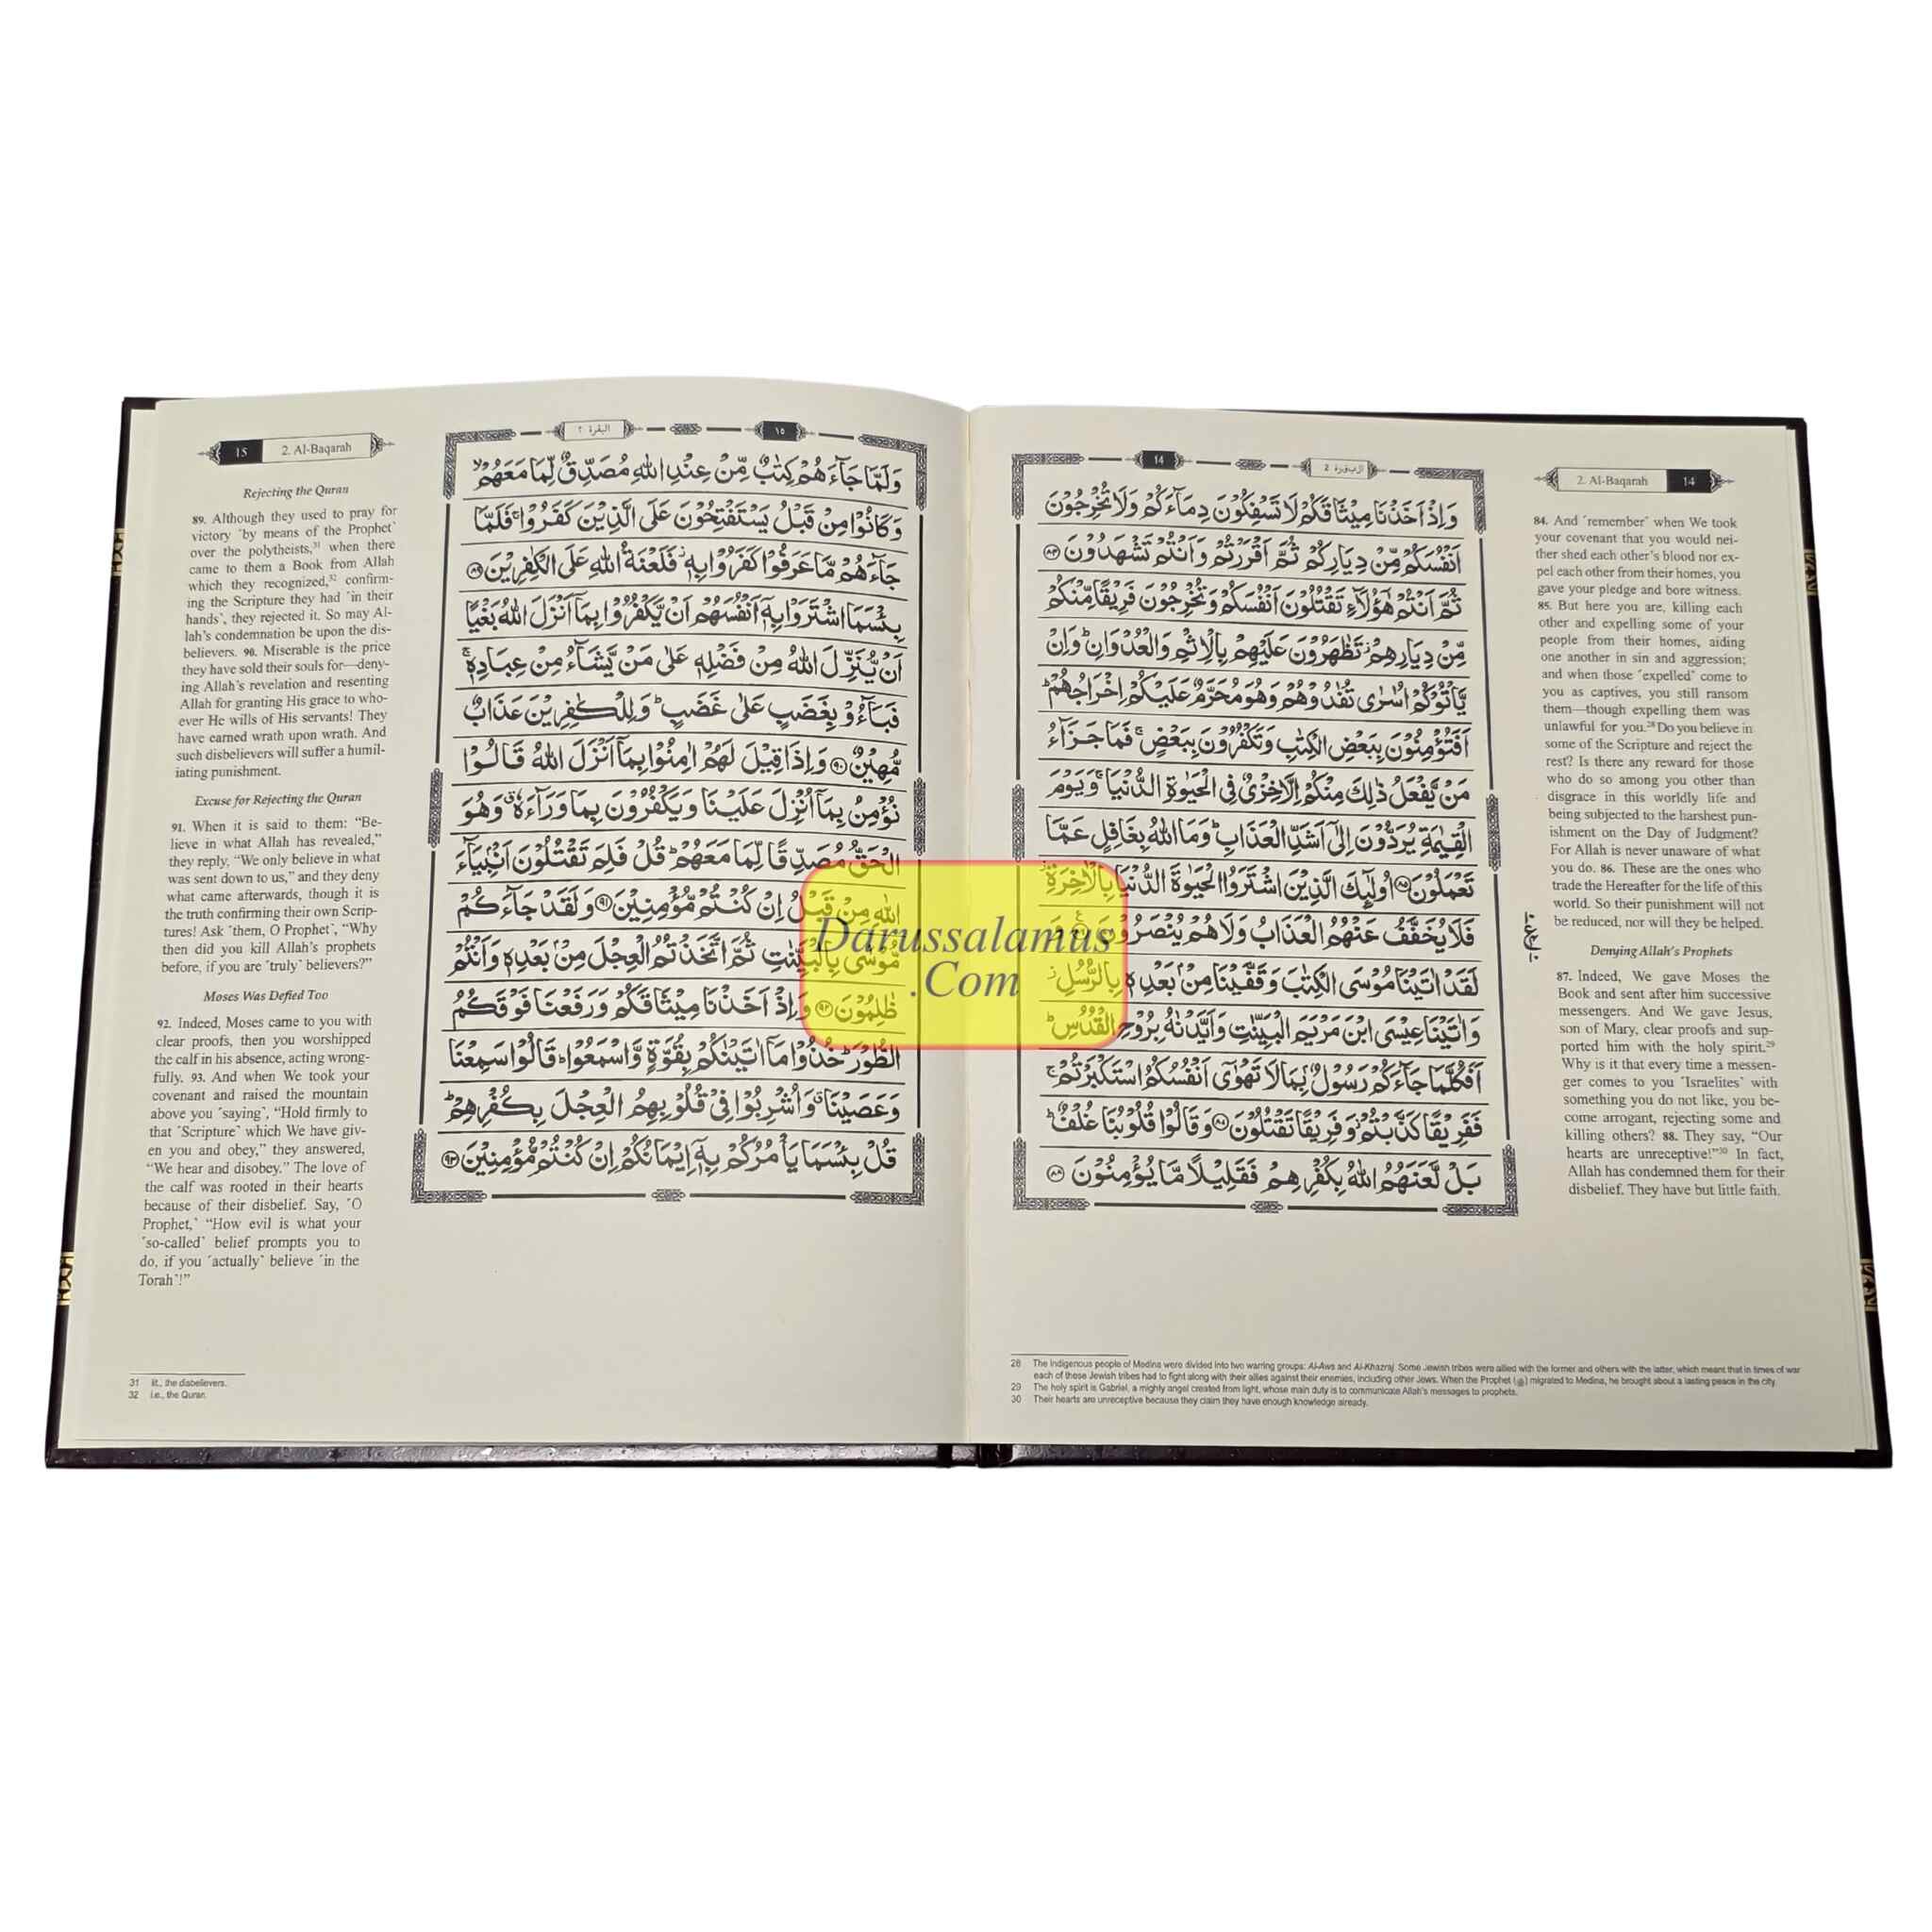 14
2 البقرة
وَاِذْ اَخَذْنَا مِيْثَاقَكُمْ لَا تَسْفِكُوْنَ دِمَآءَكُمْ وَلَا تُخْرِجُوْنَ
اَنْفُسَكُمْ مِّنْ دِيَارِكُمْ ثُمَّ اَقْرَرْتُمْ وَاَنْتُمْ تَشْهَدُوْنَ
ثُمَّ اَنْتُمْ هٰٓؤُلَآءِ تَقْتُلُوْنَ اَنْفُسَكُمْ وَتُخْرِجُوْنَ فَرِيْقًا مِّنْكُمْ
مِّنْ دِيَارِهِمْ تَظٰهَرُوْنَ عَلَيْهِمْ بِالْاِثْمِ وَالْعُدْوَانِ وَاِنْ
يَّاْتُوْكُمْ اُسٰرٰى تُفٰدُوْهُمْ وَهُوَ مُحَرَّمٌ عَلَيْكُمْ اِخْرَاجُهُمْ
اَفَتُؤْمِنُوْنَ بِبَعْضِ الْكِتٰبِ وَتَكْفُرُوْنَ بِبَعْضٍ فَمَا جَزَآءُ
مَنْ يَّفْعَلُ ذٰلِكَ مِنْكُمْ اِلَّا خِزْىٌ فِى الْحَيٰوةِ الدُّنْيَا وَيَوْمَ
الْقِيٰمَةِ يُرَدُّوْنَ اِلٰٓى اَشَدِّ الْعَذَابِ وَمَا اللّٰهُ بِغَافِلٍ عَمَّا
تَعْمَلُوْنَ ۝۸۵ اُولٰٓئِكَ الَّذِيْنَ اشْتَرَوُا الْحَيٰوةَ الدُّنْيَا بِالْاٰخِرَةِ
فَلَا يُخَفَّفُ عَنْهُمُ الْعَذَابُ وَلَا هُمْ يُنْصَرُوْنَ
لَقَدْ اٰتَيْنَا مُوْسَى الْكِتٰبَ وَقَفَّيْنَا مِنْۢ بَعْدِهٖ بِالرُّسُلِ
وَاٰتَيْنَا عِيْسَى ابْنَ مَرْيَمَ الْبَيِّنٰتِ وَاَيَّدْنٰهُ بِرُوْحِ الْقُدُسِ
اَفَكُلَّمَا جَآءَكُمْ رَسُوْلٌۢ بِمَا لَا تَهْوٰٓى اَنْفُسُكُمُ اسْتَكْبَرْتُمْ
فَفَرِيْقًا كَذَّبْتُمْ وَفَرِيْقًا تَقْتُلُوْنَ ۝۸۷ وَقَالُوْا قُلُوْبُنَا غُلْفٌ
بَلْ لَّعَنَهُمُ اللّٰهُ بِكُفْرِهِمْ فَقَلِيْلًا مَّا يُؤْمِنُوْنَ ۝۸۸
2. Al-Baqarah 14
84. And ˹remember˺ when We took
your covenant that you would nei-
ther shed each other's blood nor ex-
pel each other from their homes, you
gave your pledge and bore witness.
85. But here you are, killing each
other and expelling some of your
people from their homes, aiding
one another in sin and aggression;
and when those ˹expelled˺ come to
you as captives, you still ransom
them—though expelling them was
unlawful for you.28 Do you believe in
some of the Scripture and reject the
rest? Is there any reward for those
who do so among you other than
disgrace in this worldly life and
being subjected to the harshest pun-
ishment on the Day of Judgment?
For Allah is never unaware of what
you do. 86. These are the ones who
trade the Hereafter for the life of this
world. So their punishment will not
be reduced, nor will they be helped.
Denying Allah's Prophets
87. Indeed, We gave Moses the
Book and sent after him successive
messengers. And We gave Jesus,
son of Mary, clear proofs and sup-
ported him with the holy spirit.29
Why is it that every time a messen-
ger comes to you ˹Israelites˺ with
something you do not like, you be-
come arrogant, rejecting some and
killing others? 88. They say, “Our
hearts are unreceptive!”30 In fact,
Allah has condemned them for their
disbelief. They have but little faith.
28 The indigenous people of Medina were divided into two warring groups: Al-Aws and Al-Khazraj. Some Jewish tribes were allied with the former and others with the latter, which meant that in times of war
each of these Jewish tribes had to fight along with their allies against their enemies, including other Jews. When the Prophet (ﷺ) migrated to Medina, he brought about a lasting peace in the city.
29 The holy spirit is Gabriel, a mighty angel created from light, whose main duty is to communicate Allah's messages to prophets.
30 Their hearts are unreceptive because they claim they have enough knowledge already.
البقرة ٢
١٥
وَلَمَّا جَآءَهُمْ كِتٰبٌ مِّنْ عِنْدِ اللّٰهِ مُصَدِّقٌ لِّمَا مَعَهُمْ
وَكَانُوْا مِنْ قَبْلُ يَسْتَفْتِحُوْنَ عَلَى الَّذِيْنَ كَفَرُوْا فَلَمَّا
جَآءَهُمْ مَّا عَرَفُوْا كَفَرُوْا بِهٖ فَلَعْنَةُ اللّٰهِ عَلَى الْكٰفِرِيْنَ ۝۸۹
بِئْسَمَا اشْتَرَوْا بِهٖٓ اَنْفُسَهُمْ اَنْ يَّكْفُرُوْا بِمَآ اَنْزَلَ اللّٰهُ بَغْيًا
اَنْ يُّنَزِّلَ اللّٰهُ مِنْ فَضْلِهٖ عَلٰى مَنْ يَّشَآءُ مِنْ عِبَادِهٖ
فَبَآءُوْ بِغَضَبٍ عَلٰى غَضَبٍ وَلِلْكٰفِرِيْنَ عَذَابٌ
مُّهِيْنٌ ۝۹۰ وَاِذَا قِيْلَ لَهُمْ اٰمِنُوْا بِمَآ اَنْزَلَ اللّٰهُ قَالُوْا
نُؤْمِنُ بِمَآ اُنْزِلَ عَلَيْنَا وَيَكْفُرُوْنَ بِمَا وَرَآءَهٗ وَهُوَ
الْحَقُّ مُصَدِّقًا لِّمَا مَعَهُمْ قُلْ فَلِمَ تَقْتُلُوْنَ اَنْۢبِيَآءَ
اللّٰهِ مِنْ قَبْلُ اِنْ كُنْتُمْ مُّؤْمِنِيْنَ ۝۹۱ وَلَقَدْ جَآءَكُمْ
مُّوْسٰى بِالْبَيِّنٰتِ ثُمَّ اتَّخَذْتُمُ الْعِجْلَ مِنْۢ بَعْدِهٖ وَاَنْتُمْ
ظٰلِمُوْنَ ۝۹۲ وَاِذْ اَخَذْنَا مِيْثَاقَكُمْ وَرَفَعْنَا فَوْقَكُمُ
الطُّوْرَ خُذُوْا مَآ اٰتَيْنٰكُمْ بِقُوَّةٍ وَّاسْمَعُوْا قَالُوْا سَمِعْنَا
وَعَصَيْنَا وَاُشْرِبُوْا فِيْ قُلُوْبِهِمُ الْعِجْلَ بِكُفْرِهِمْ
قُلْ بِئْسَمَا يَاْمُرُكُمْ بِهٖٓ اِيْمَانُكُمْ اِنْ كُنْتُمْ مُّؤْمِنِيْنَ ۝۹۳
15 2. Al-Baqarah
Rejecting the Quran
89. Although they used to pray for
victory ˹by means of the Prophet˺
over the polytheists,31 when there
came to them a Book from Allah
which they recognized,32 confirm-
ing the Scripture they had ˹in their
hands˺, they rejected it. So may Al-
lah's condemnation be upon the dis-
believers. 90. Miserable is the price
they have sold their souls for—deny-
ing Allah's revelation and resenting
Allah for granting His grace to who-
ever He wills of His servants! They
have earned wrath upon wrath. And
such disbelievers will suffer a humil-
iating punishment.
Excuse for Rejecting the Quran
91. When it is said to them: “Be-
lieve in what Allah has revealed,”
they reply, “We only believe in what
was sent down to us,” and they deny
what came afterwards, though it is
the truth confirming their own Scrip-
tures! Ask ˹them, O Prophet˺, “Why
then did you kill Allah's prophets
before, if you are ˹truly˺ believers?”
Moses Was Defied Too
92. Indeed, Moses came to you with
clear proofs, then you worshipped
the calf in his absence, acting wrong-
fully. 93. And when We took your
covenant and raised the mountain
above you ˹saying˺, “Hold firmly to
that ˹Scripture˺ which We have giv-
en you and obey,” they answered,
“We hear and disobey.” The love of
the calf was rooted in their hearts
because of their disbelief. Say, ˹O
Prophet,˺ “How evil is what your
˹so-called˺ belief prompts you to
do, if you ˹actually˺ believe ˹in the
Torah˺!”
31 lit., the disbelievers.
32 i.e., the Quran.
Darussalamus
.Com